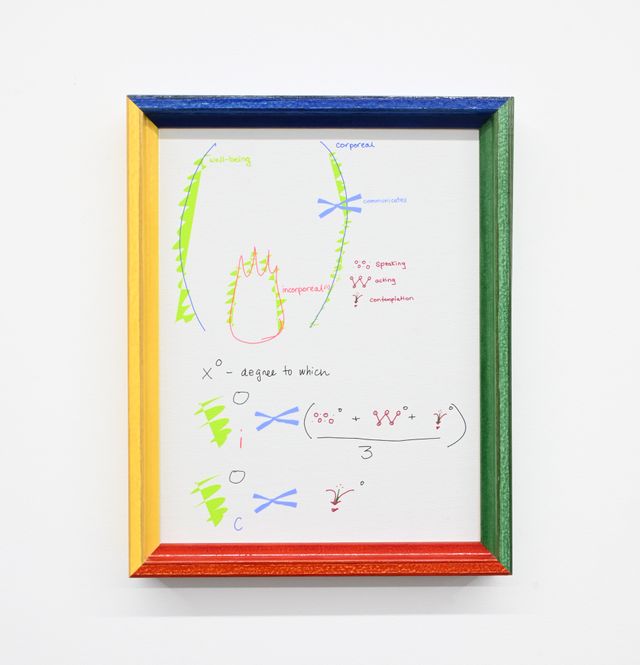 well-being
corporeal
communicates
incorporeal(s)
speaking
acting
contemplation
X° – degree to which
° i ( ° + ° + ° )
3
° c °